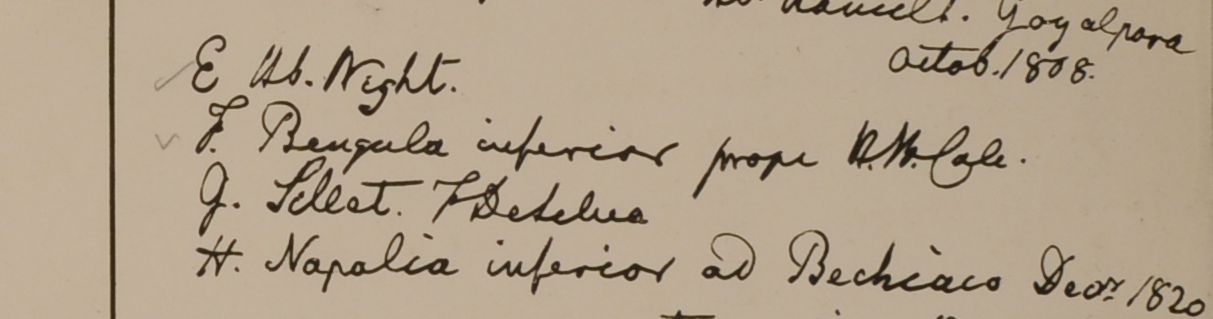 Hamilt. Goyalpara
Octob. 1808.
E Hb. Wight.
F. Bengala inferior prope H.B. Calc.
G. Sillet. F Desilva
H. Napalia inferior ad Bechiaco Decr. 1820